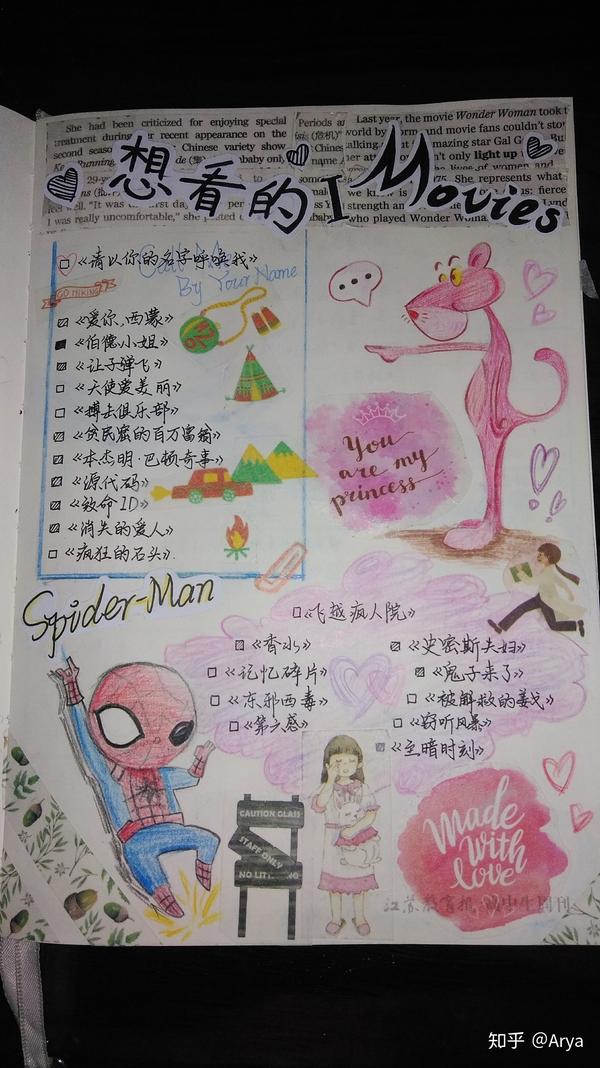 She had been criticized for enjoying special
treatment during her recent appearance on the
second season
Chinese variety show
Running
baby only
29-year
well. "It was the first day
was really uncomfortable," she posted
Periods a
(危机)
Chinese
name
Last year, the movie Wonder Woman took
world by storm and movie fans couldn't sto
alking
amazing star Gal G
her
n't only light up
the lives of women and
75. She represents what
we know is
us: fierce
strength an
who played Wonder Woma
想看的 I Movies
□《请以你的名字呼唤我》
Call Me
By Your Name
GO HIKING
《爱你,西蒙》
《伯德小姐》
《让子弹飞》
□《天使爱美丽》
□《搏击俱乐部》
《贫民窟的百万富翁》
《本杰明·巴顿奇事》
《源代码》
《致命ID》
《消失的爱人》
□《疯狂的石头》
You
are my
princess
Spider-Man
□《飞越疯人院》
《香水》
《史密斯夫妇》
□《记忆碎片》
《鬼子来了》
□《东邪西毒》
□《被解救的姜戈》
□《第六感》
□《窃听风暴》
《至暗时刻》
CAUTION GLASS
STAFF ONLY
NO LITTERING
Made
with
love
江苏教育报
周刊
知乎 @Arya